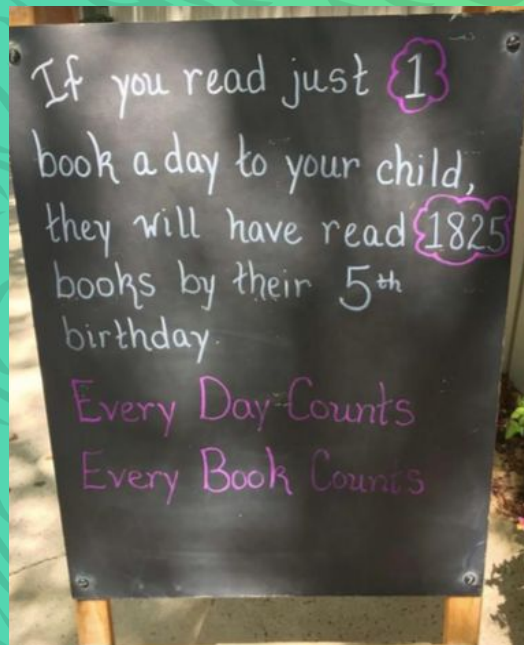 If you read just 1
book a day to your child,
they will have read 1825
books by their 5th
birthday.
Every Day Counts
Every Book Counts